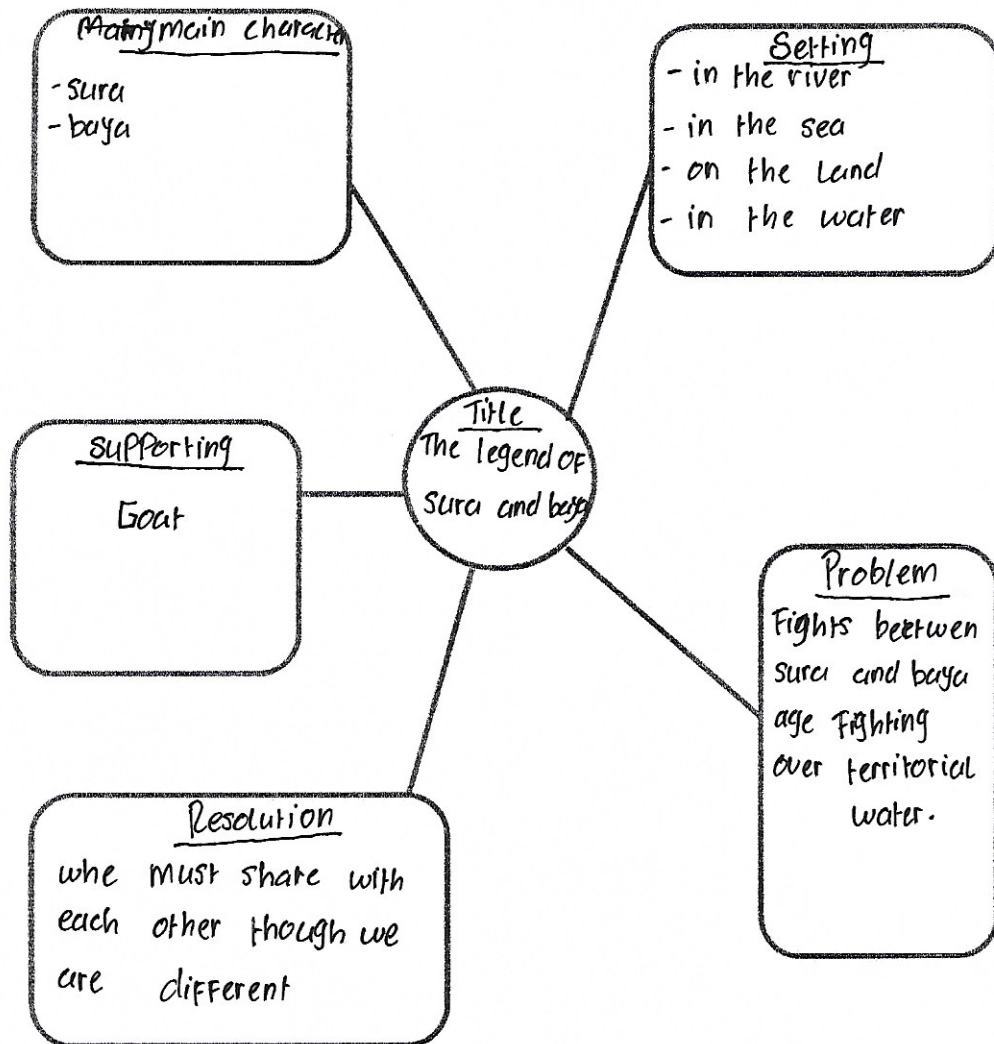 main character
- sura
- baya
Setting
- in the river
- in the sea
- on the Land
- in the water
Title
The legend of
sura and baya
supporting
Goat
Problem
Fights beetwen
sura and baya
age Fighting
over territorial
water.
Resolution
whe must share with
each other though we
are different